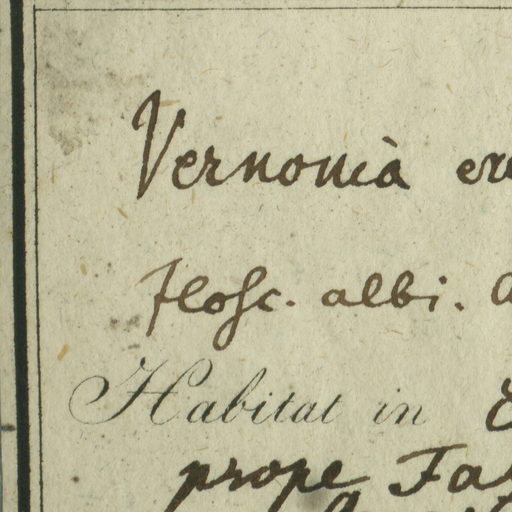 Vernonia
Flosc. albi.
Habitat in
prope